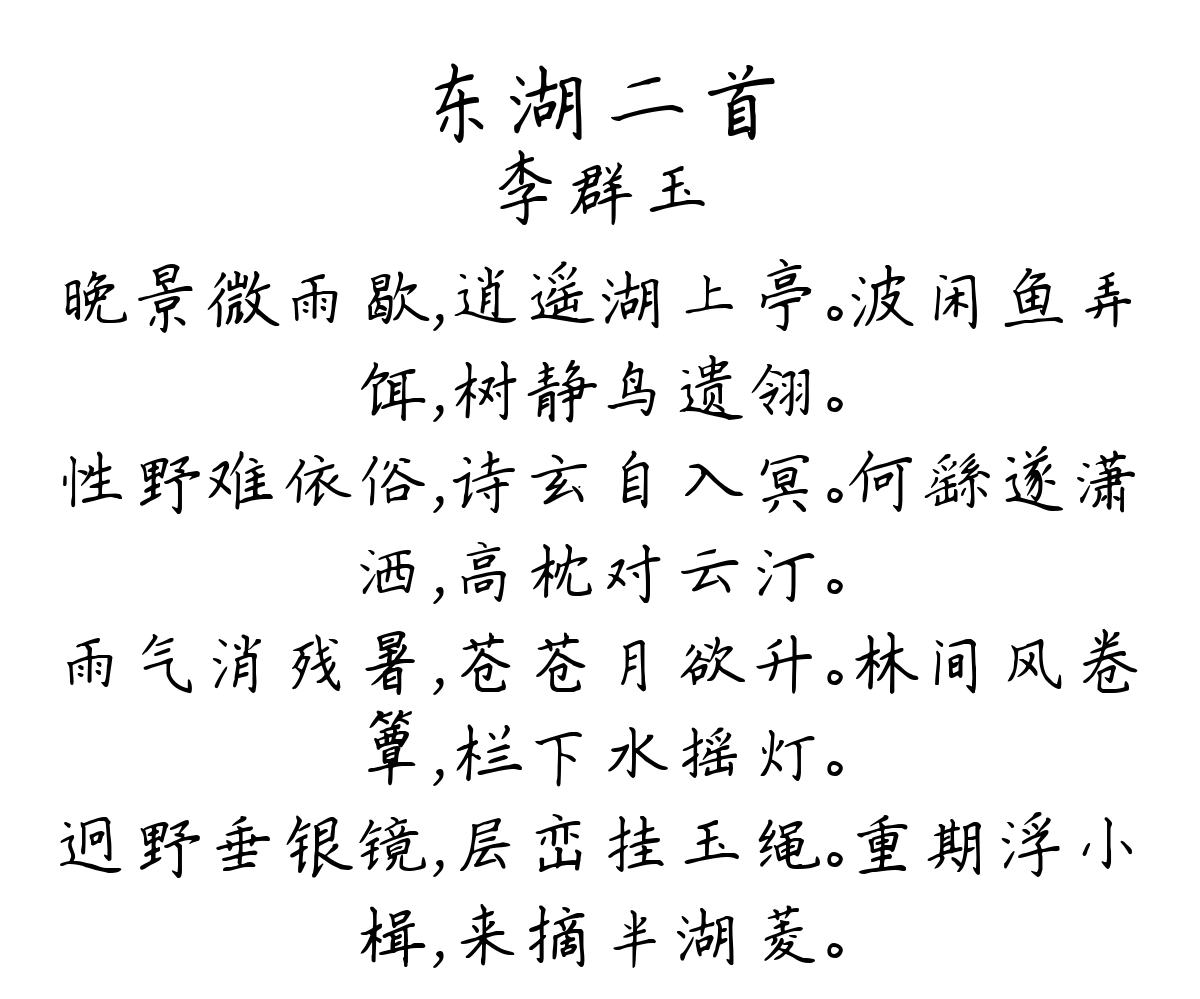 东湖二首
李群玉
晚景微雨歇,逍遥湖上亭。波闲鱼弄
饵,树静鸟遗翎。
性野难依俗,诗玄自入冥。何繇遂潇
洒,高枕对云汀。
雨气消残暑,苍苍月欲升。林间风卷
簟,栏下水摇灯。
迥野垂银镜,层峦挂玉绳。重期浮小
楫,来摘半湖菱。